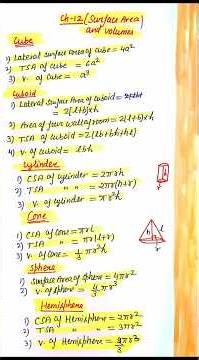 Ch-12 (Surface Area
and volumes)
Cube
1) Lateral Surface Area of cube = 4a²
2) TSA of cube = 6a²
3) V. of cube = a³
Cuboid
1) Lateral Surface Area of cuboid =
= 2(l+b)×h
2) Area of four walls of room = 2(l+b)×h
3) TSA of cuboid = 2(lb+bh+hl)
4) V. of cuboid = lbh
Cylinder
1) CSA of cylinder = 2πrh
2) TSA " " = 2πr(h+r)
3) V. of cylinder = πr²h
Cone
1) CSA of cone = πrl
2) TSA " " = πr(l+r)
3) V. of cone = 1/3 πr²h
h l
r
Sphere
1) Surface Area of Sphere = 4πr²
2) V. of sphere = 4/3 πr³
Hemisphere
1) CSA of Hemisphere = 2πr²
2) TSA " " = 3πr²
3) V. of Hemisphere = 2/3 πr³